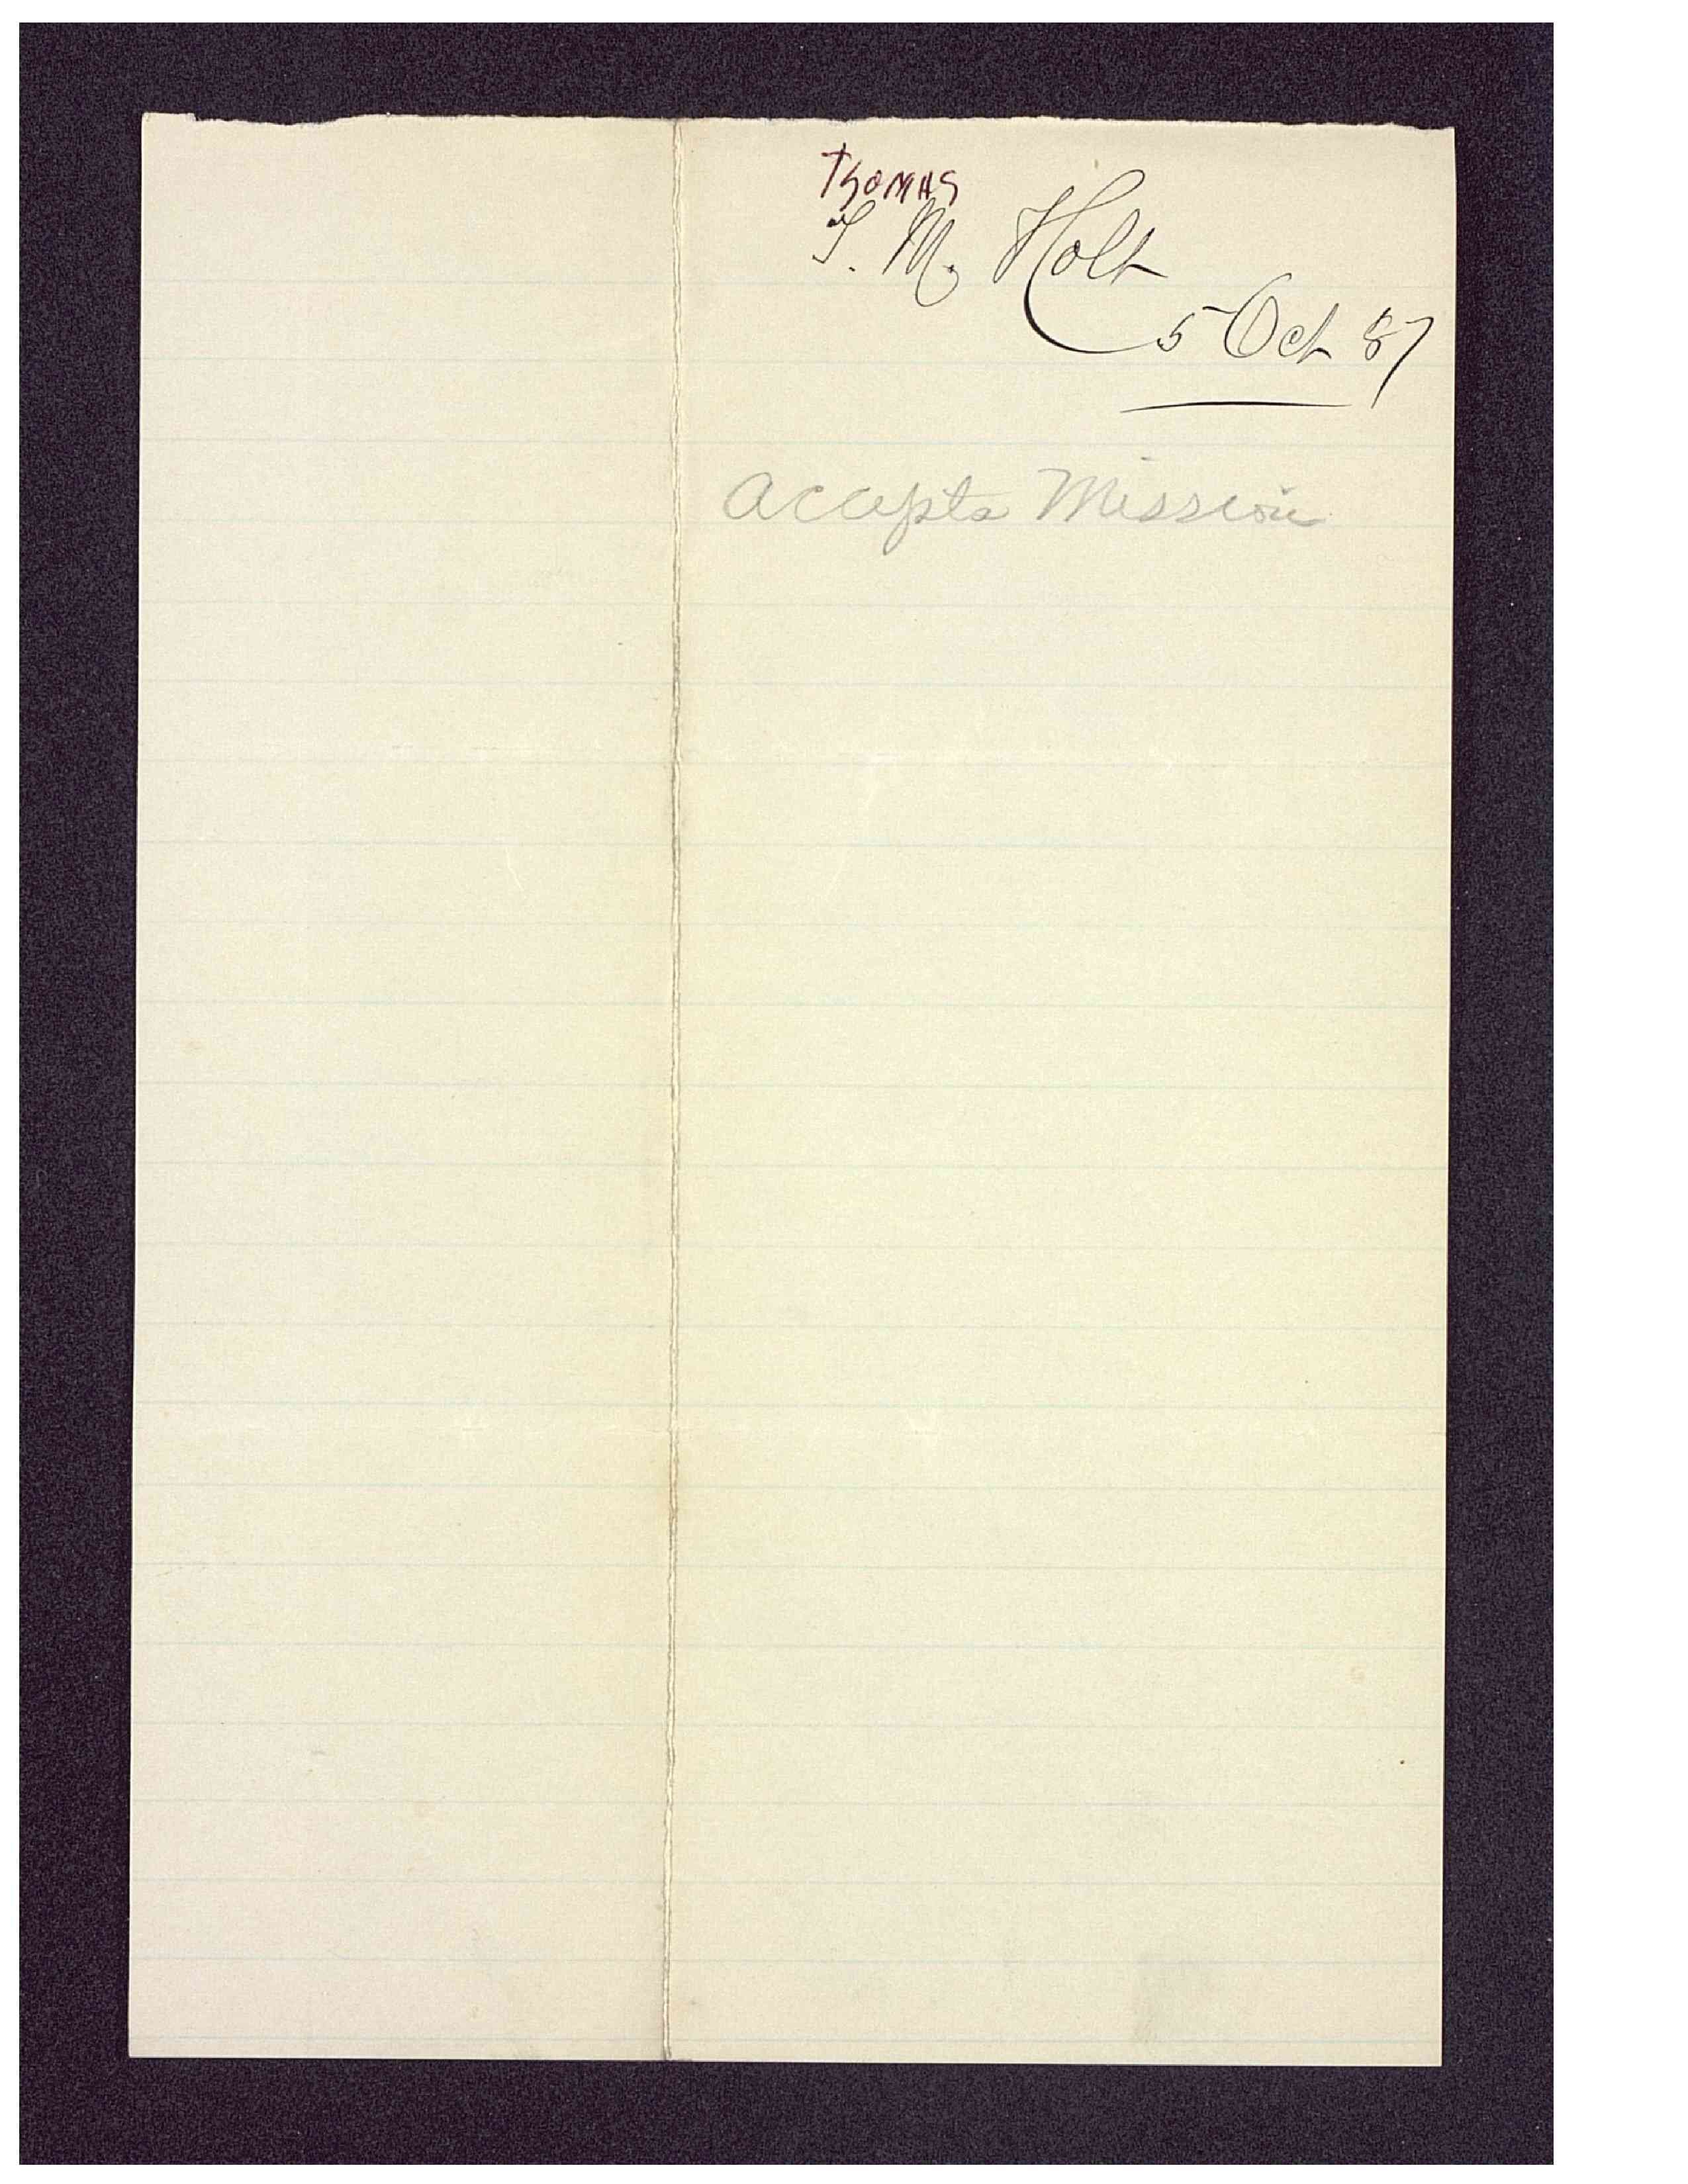 Thomas
T. M. Holt
5 Oct 87
Accepts Mission